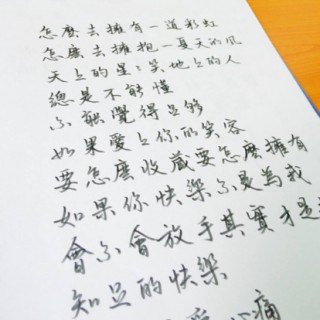 怎麼去擁有一道彩虹
怎麼去擁抱一夏天的風
天上的星星笑地上的人
總是不能懂
不能覺得足夠
如果愛上你的笑容
要怎麼收藏要怎麼擁有
如果你快樂不是為我
會不會放手其實才是
知足的快樂
心痛